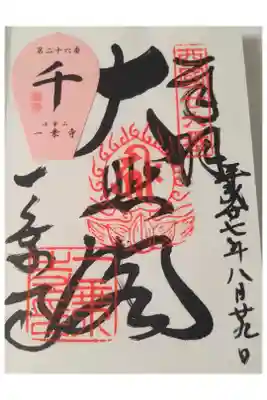 平成廿七年八月廿九日
奉拝
大悲閣
一乗寺
第二十六番
千
法華山
一乗寺